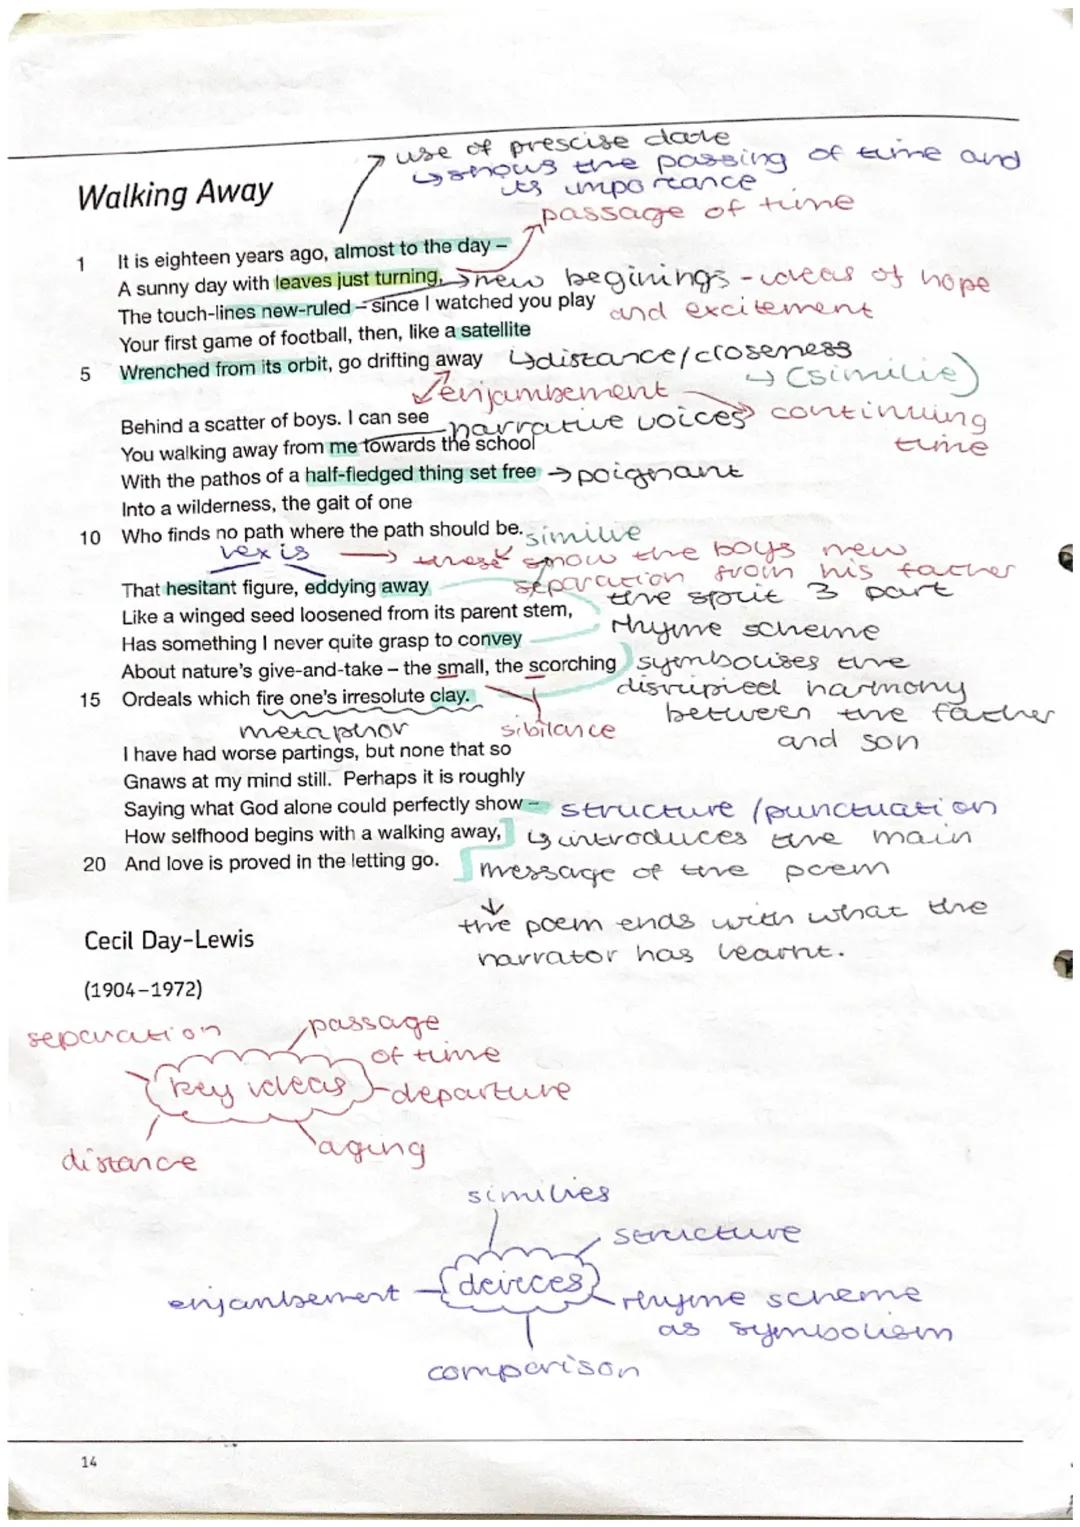 use of prescise date
↳ shows the passing of time and
its importance
Walking Away
passage of time
1 It is eighteen years ago, almost to the day –
A sunny day with leaves just turning, → new beginings - ideas of hope
and excitement
The touch-lines new-ruled – since I watched you play
Your first game of football, then, like a satellite
5 Wrenched from its orbit, go drifting away ↳ distance/closeness
↳ (similie)
enjambement → continuing
time
Behind a scatter of boys. I can see
narrative voices
You walking away from me towards the school
With the pathos of a half-fledged thing set free → poignant
Into a wilderness, the gait of one
10 Who finds no path where the path should be. similie
lexis → these show the boys new
separation from his father
That hesitant figure, eddying away
the split 3 part
Like a winged seed loosened from its parent stem,
rhyme scheme
Has something I never quite grasp to convey
About nature's give-and-take – the small, the scorching symbolises the
15 Ordeals which fire one's irresolute clay. disrupted harmony
between the father
and son
metaphor
sibilance
I have had worse partings, but none that so
Gnaws at my mind still. Perhaps it is roughly
Saying what God alone could perfectly show – structure / punctuation
How selfhood begins with a walking away, ↳ introduces the main
20 And love is proved in the letting go. message of the poem
↓
the poem ends with what the
narrator has learnt.
Cecil Day-Lewis
(1904–1972)
separation
passage
of time
key ideas
departure
distance
aging
similies
structure
enjambement
deivces
rhyme scheme
as symbolism
comparison
14